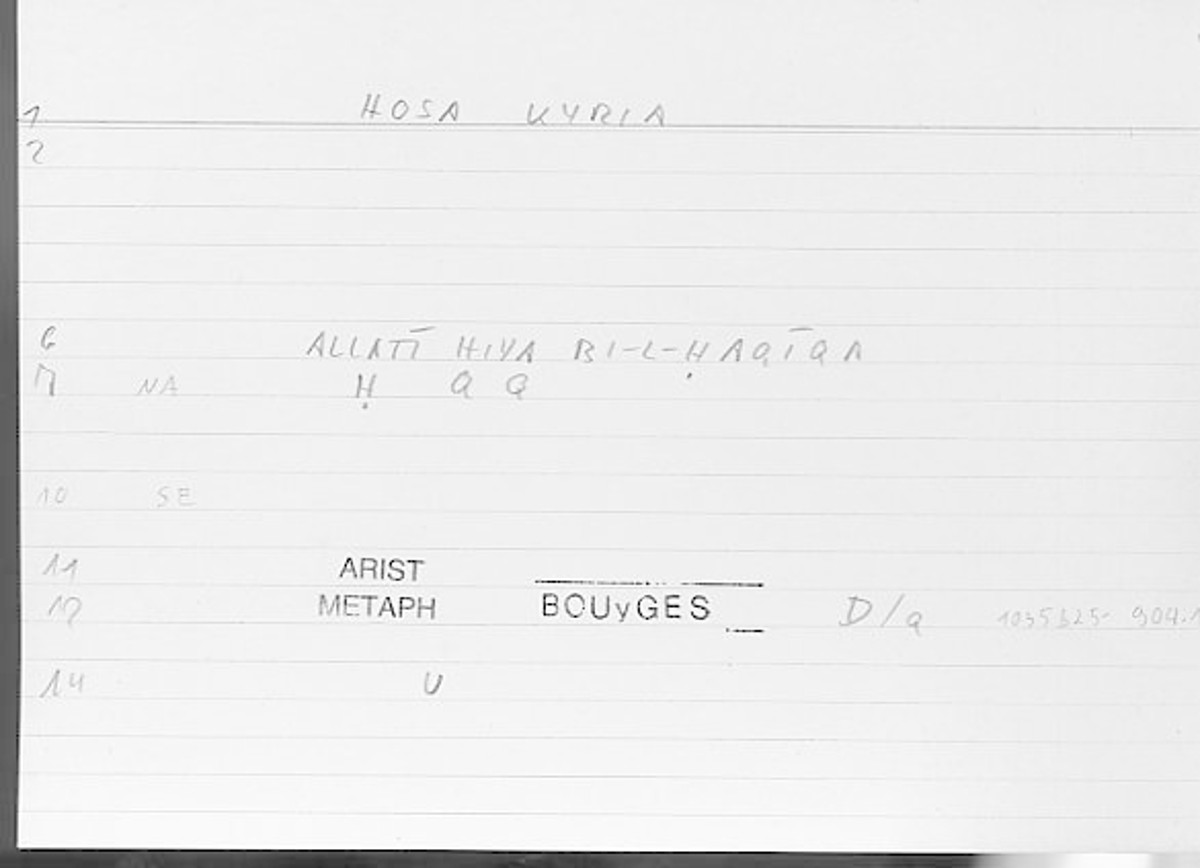 1 HOSA KYRIA
2
6 ALLATĪ HIYA BI-L-ḤAQĪQA
7 NA Ḥ Q Q
10 SE
11 ARIST
12 METAPH BOUyGES D/a
14 U